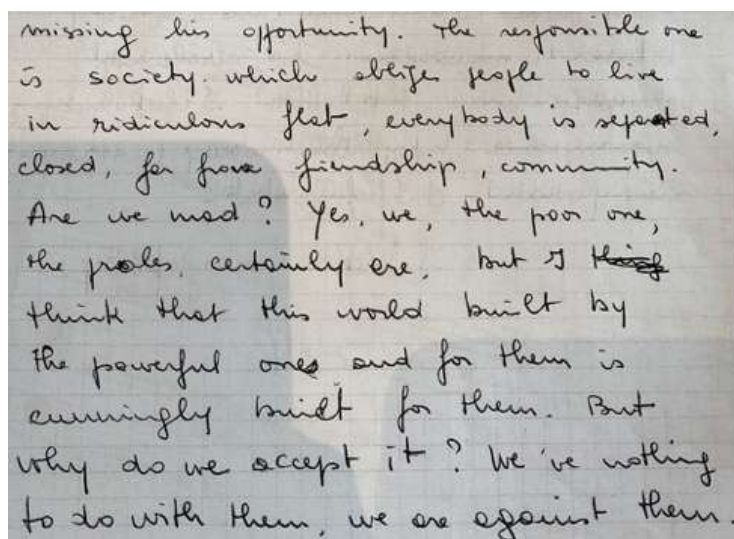 missing his opportunity. The responsible one
is society. which obliges people to live
in ridiculous flat, everybody is separated,
closed, far from friendship, community.
Are we mad? Yes, we, the poor one,
the proles, certainly are, but I thing
think that this world built by
the powerful ones and for them is
cunningly built for them. But
why do we accept it? We've nothing
to do with them, we are against them.